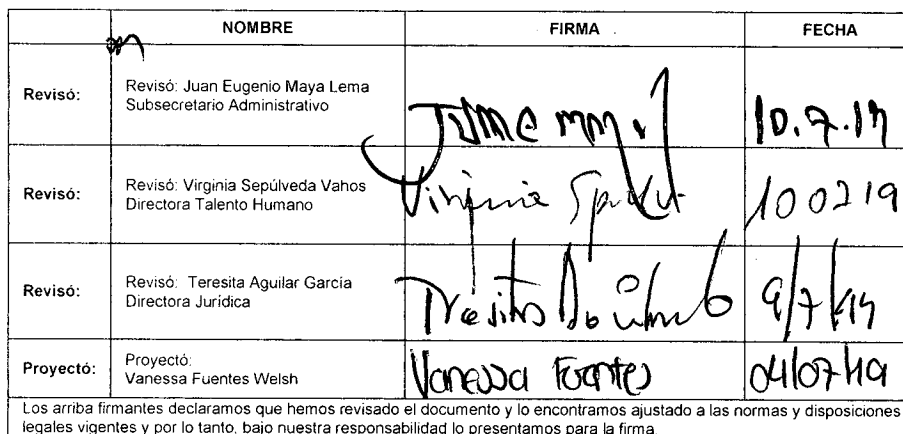 NOMBRE FIRMA FECHA
Revisó: Revisó: Juan Eugenio Maya Lema
Subsecretario Administrativo
10.7.19
Revisó: Revisó: Virginia Sepúlveda Vahos
Directora Talento Humano
Virginia
Revisó: Revisó: Teresita Aguilar García
Directora Jurídica
9/7/19
Proyectó: Proyectó:
Vanessa Fuentes Welsh
Vanessa Fuentes 04/07/19
Los arriba firmantes declaramos que hemos revisado el documento y lo encontramos ajustado a las normas y disposiciones
legales vigentes y por lo tanto, bajo nuestra responsabilidad lo presentamos para la firma.